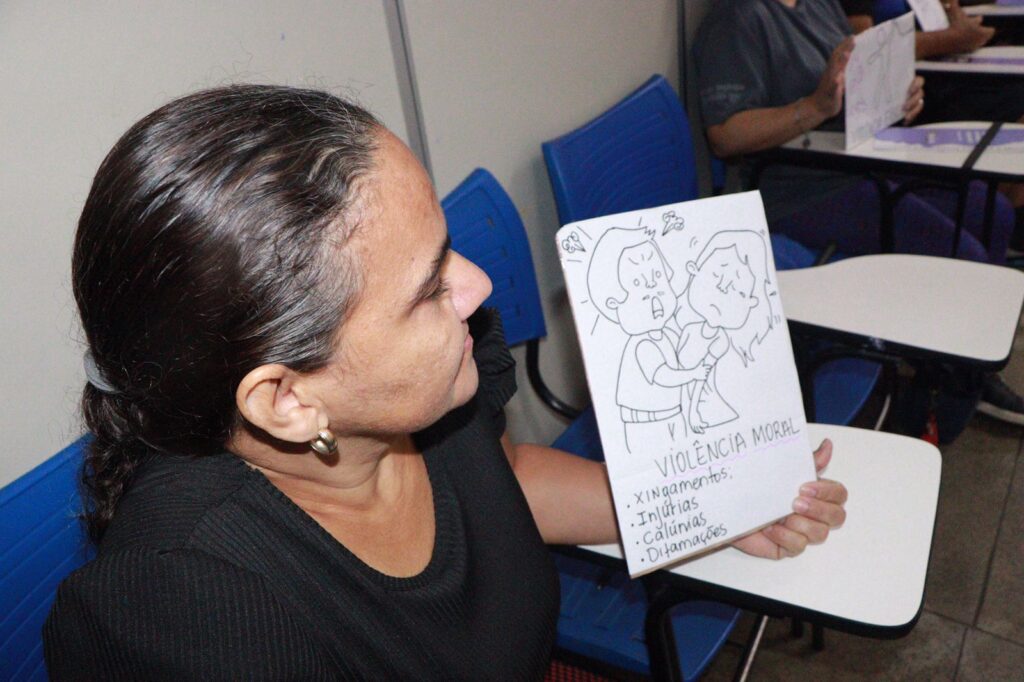 VIOLÊNCIA MORAL
• XINgamentos;
• Injúrias
• Calúnias
• Difamações